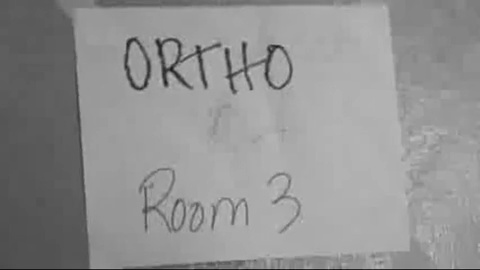 ORTHO
Room 3